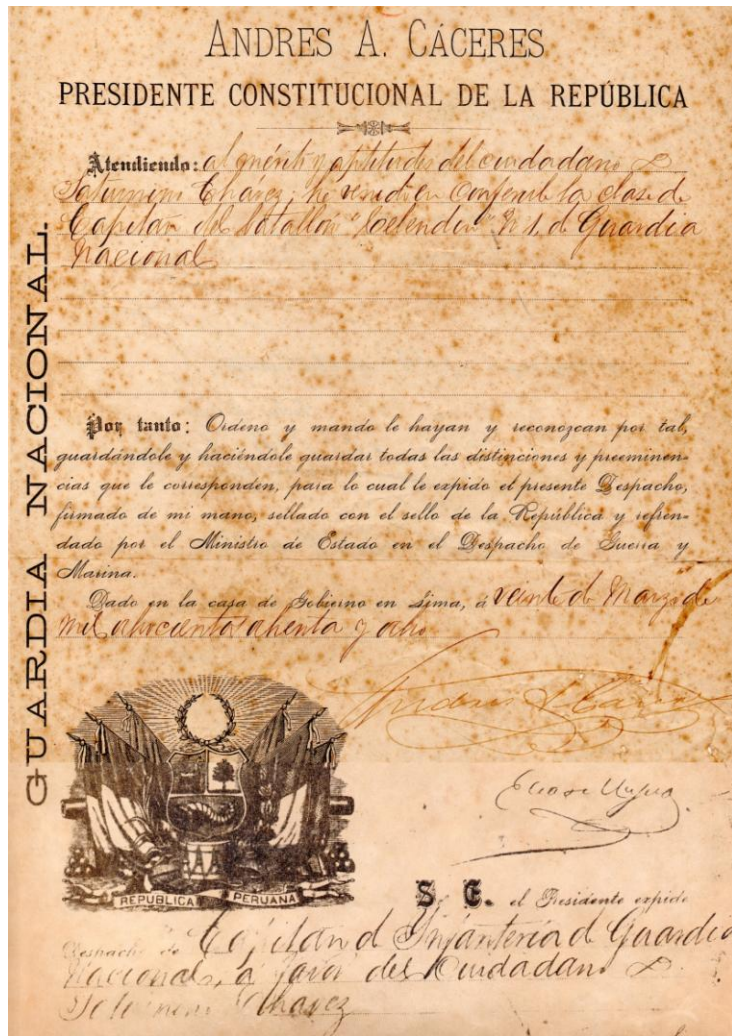 ANDRES A. CÁCERES
PRESIDENTE CONSTITUCIONAL DE LA REPÚBLICA
Atendiendo: al mérito y aptitudes del ciudadano D
Saturnino Chavez, he venido en Conferirle la clase de
Capitán del Batallón "Celendin" N 1, d Guardia
Nacional
GUARDIA NACIONAL.
Por tanto: Ordeno y mando le hayan y reconozcan por tal,
guardándole y haciéndole guardar todas las distinciones y preeminen-
cias que le corresponden, para lo cual le expido el presente Despacho,
firmado de mi mano, sellado con el sello de la República y refren-
dado por el Ministro de Estado en el Despacho de Guerra y
Marina.
Dado en la casa de Gobierno en Lima, á veinte d Marzo de
mil ochocientos ochenta y ocho
REPUBLICA PERUANA
S. E. el Presidente expide
Despacho de Capitan d Infanteria d Guardia
Nacional, á favor del Ciudadano D
Saturnino Chavez